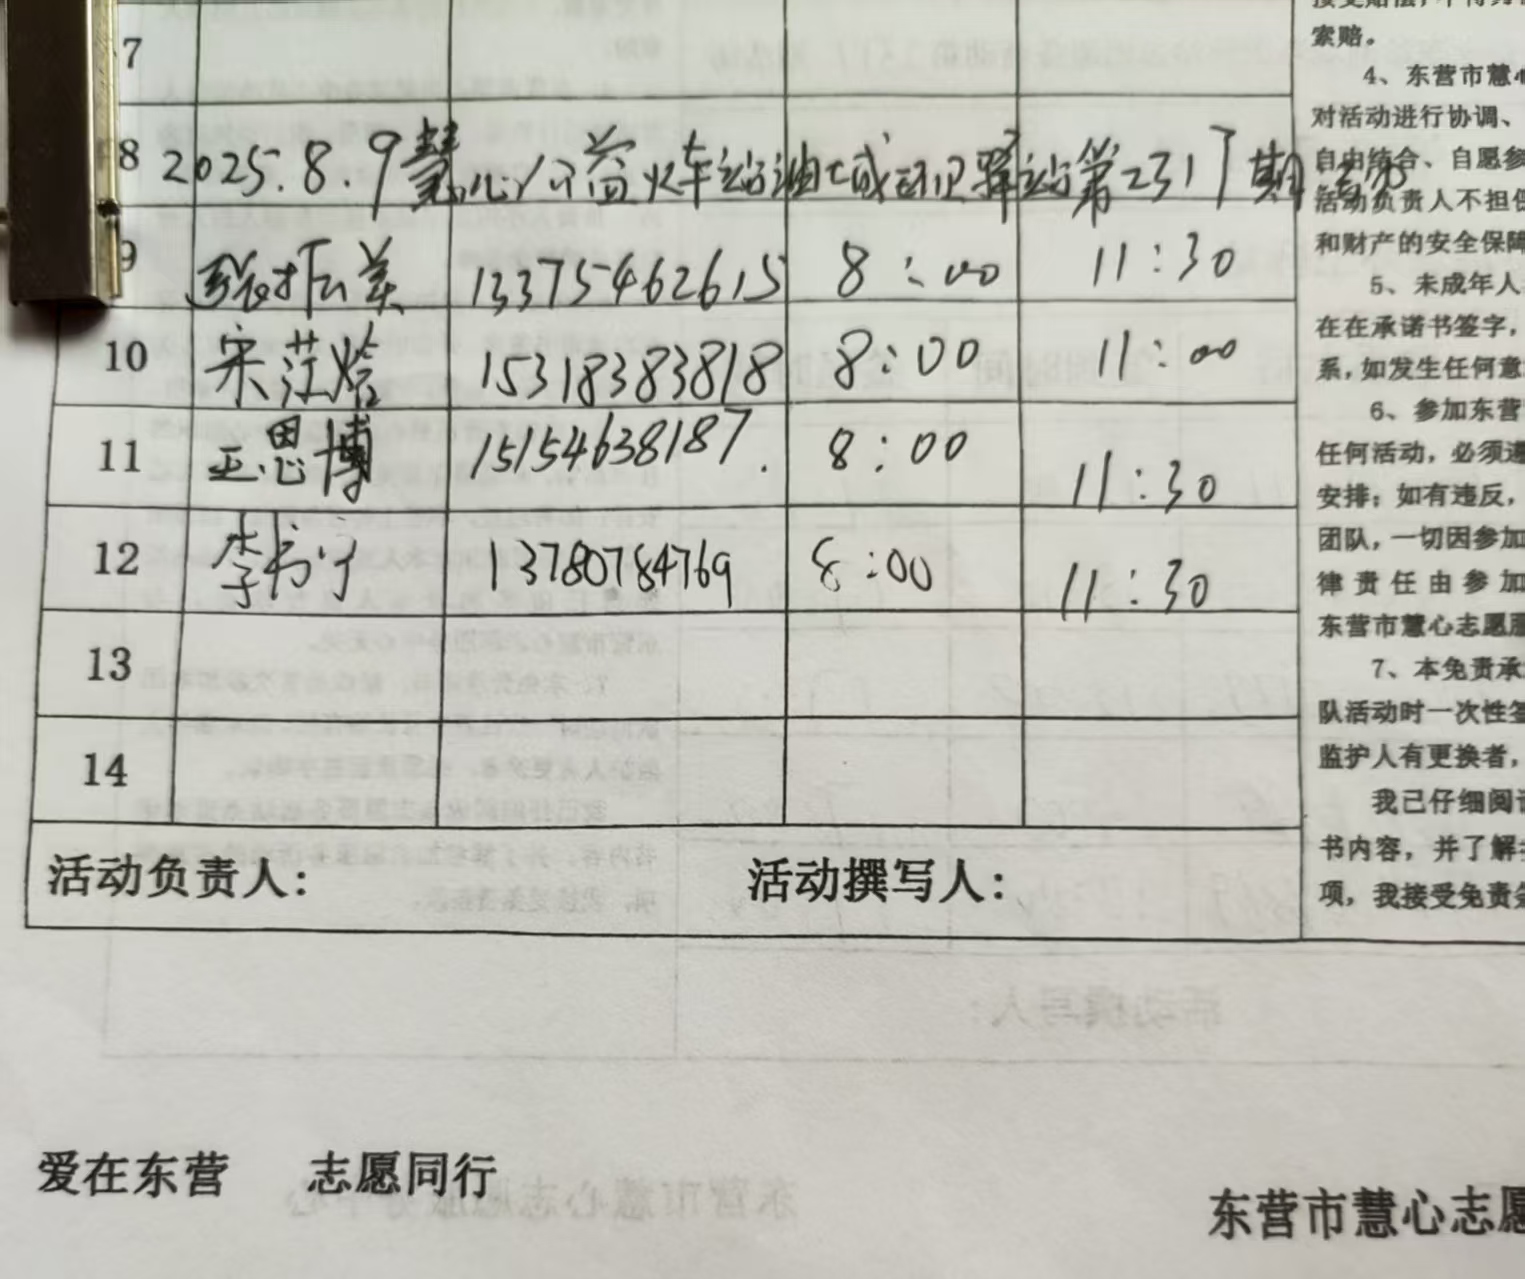 7
8 2025.8.9慧心公益火车站油城环卫驿站第2317期
9 张振美 13375462615 8:00 11:30
10 宋萍 15318383818 8:00 11:00
11 王思博 15154638187. 8:00 11:30
12 李书 13780784769 8:00 11:30
13
14
活动负责人: 活动撰写人:
索赔。
4、东营市慧
对活动进行协调、
自由结合、自愿参
活动负责人不担保
和财产的安全保障
5、未成年人
在在承诺书签字,
系,如发生任何意
6、参加东营
任何活动,必须遵
安排;如有违反,
团队,一切因参加
律责任由参加
东营市慧心志愿服
7、本免责承
队活动时一次性签
监护人有更换者,
我已仔细阅
书内容,并了解
项,我接受免责条
爱在东营 志愿同行
东营市慧心志愿